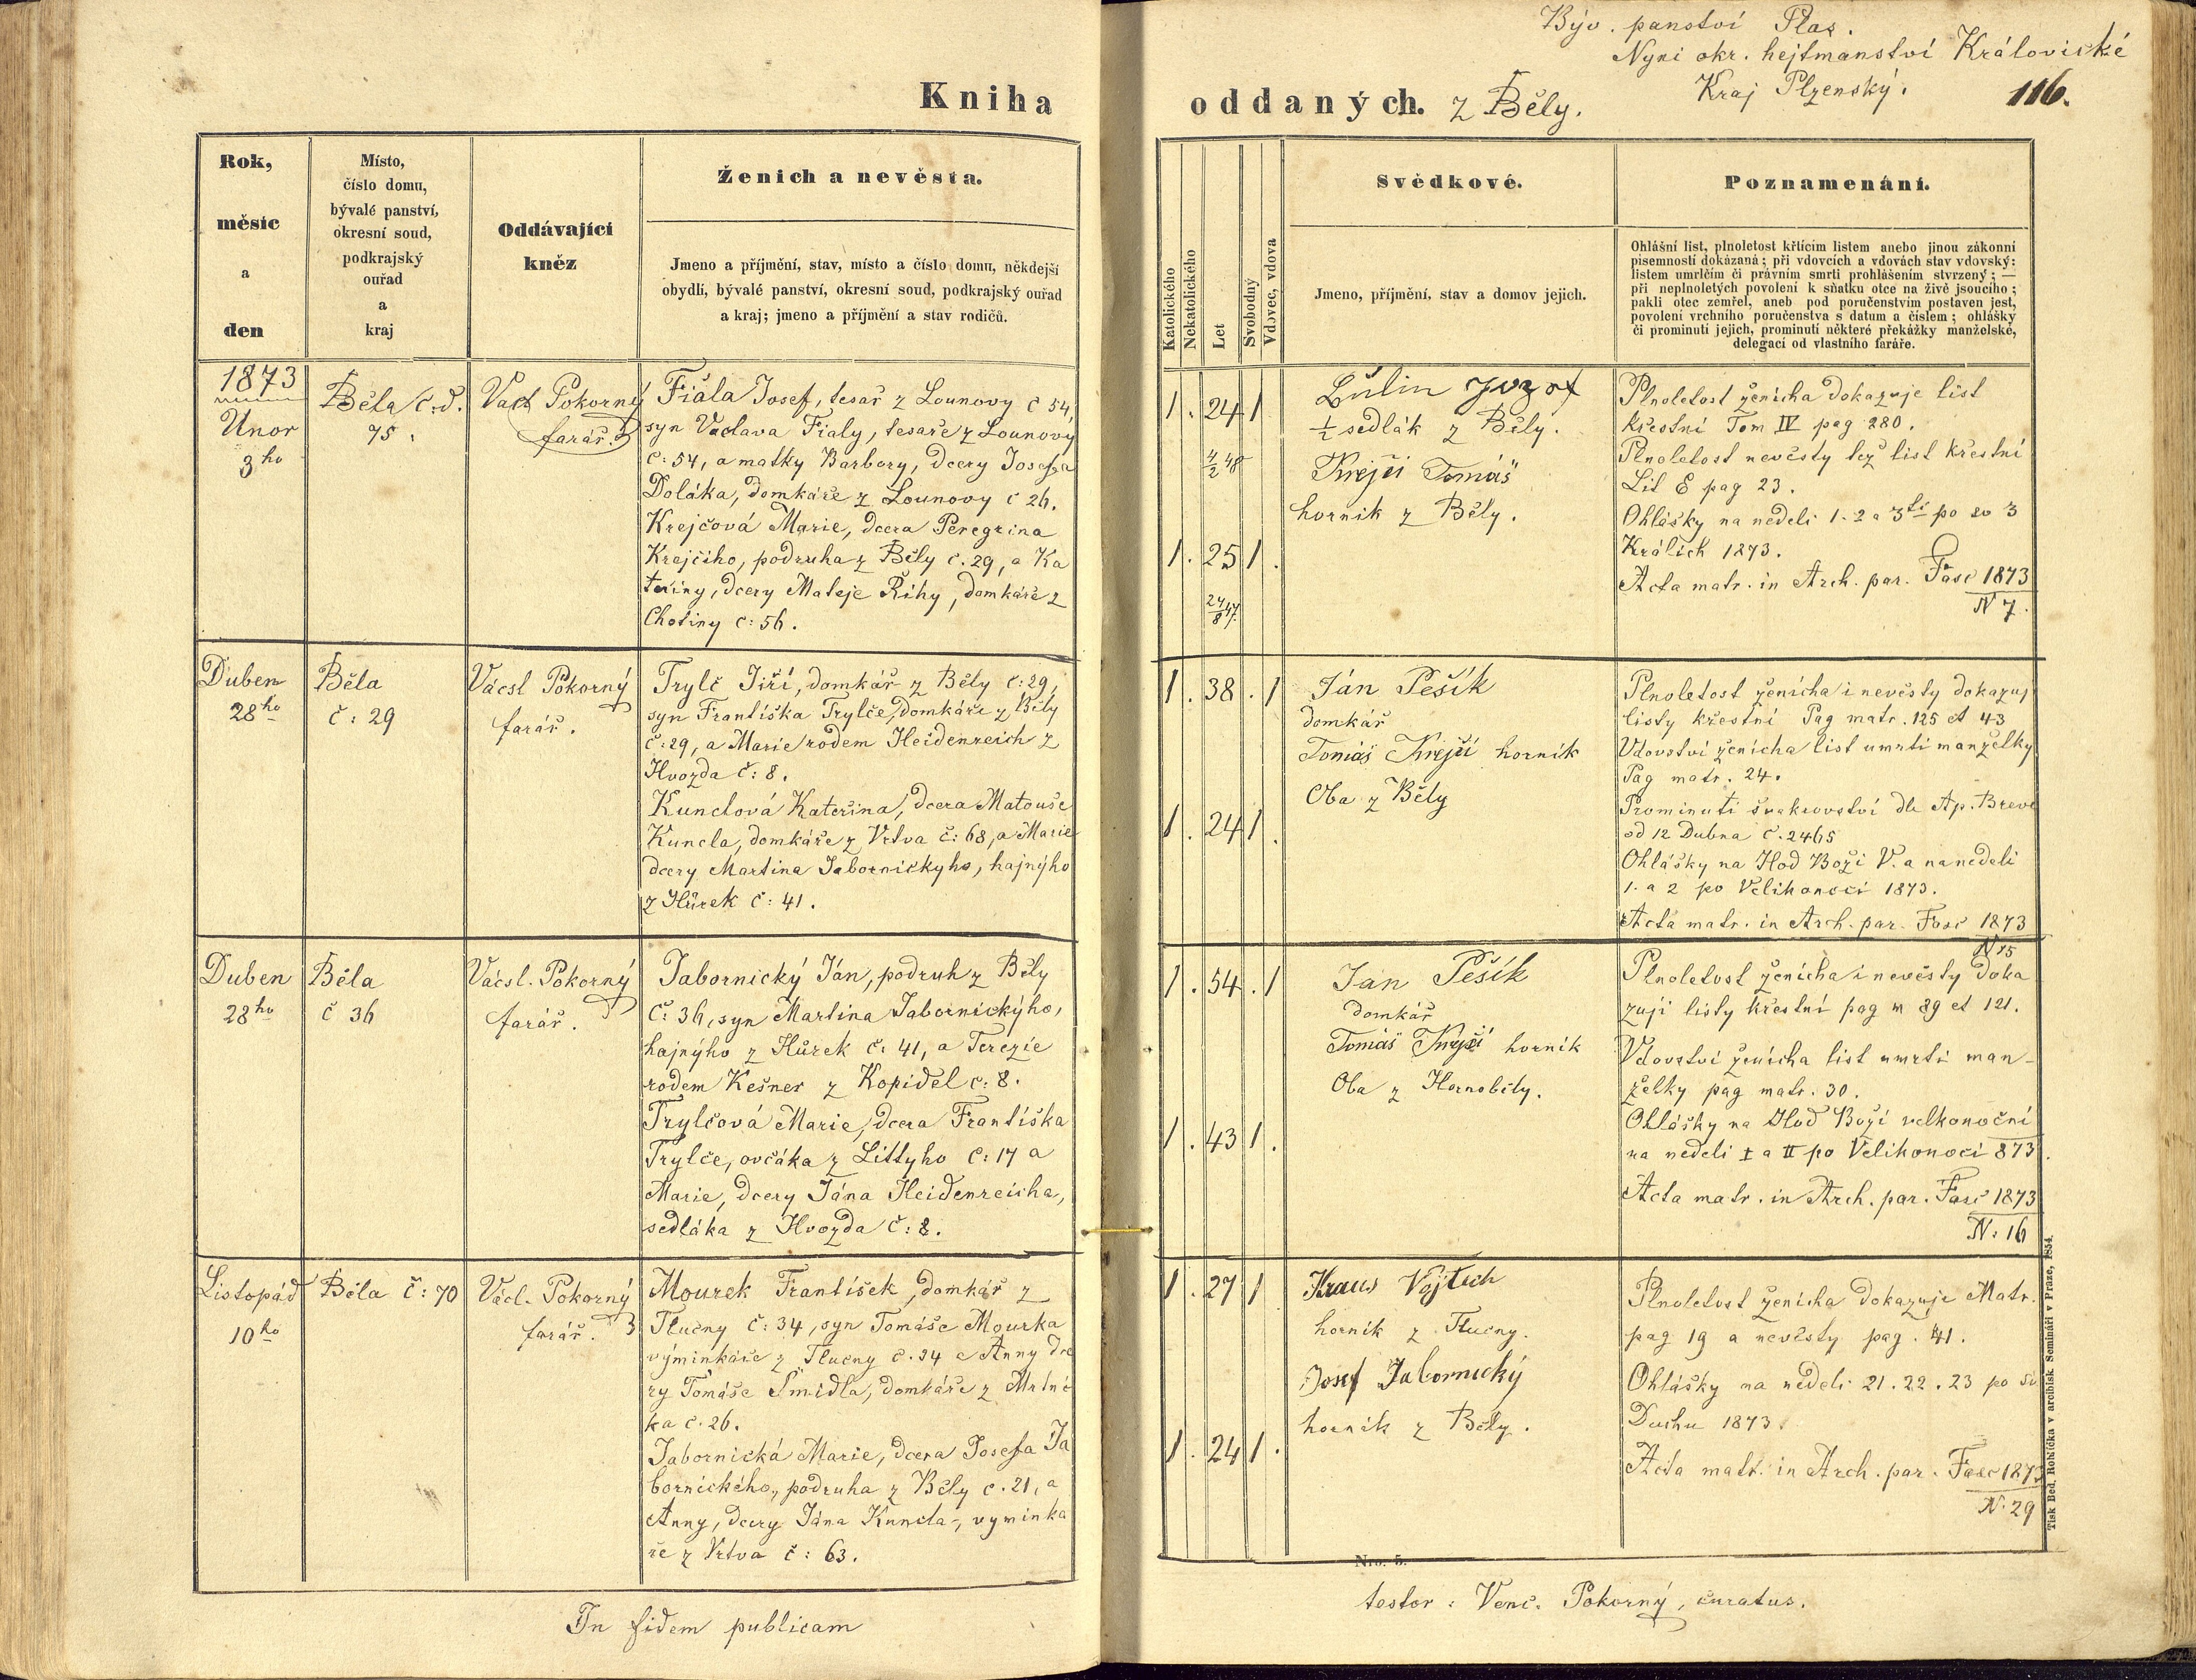 Býv. panství Plas.
Nyní okr. hejtmanství Královické
Kraj Plzenský.
116.
Kniha oddaných. z Běly.
Rok,
měsíc
a
den
Místo,
číslo domu,
bývalé panství,
okresní soud,
podkrajský
ouřad
a
kraj
Oddávající
kněz
Ženich a nevěsta.
Jmeno a příjmění, stav, místo a číslo domu, někdejší
obydlí, bývalé panství, okresní soud, podkrajský ouřad
a kraj; jmeno a příjmění a stav rodičů.
Katolického
Nekatolického
Let
Svobodný
Vdovec, vdova
Svědkové.
Jmeno, příjmění, stav a domov jejich.
Poznamenání.
Ohlášní list, plnoletost křtícím listem anebo jinou zákonní
písemností dokázaná; při vdovcích a vdovách stav vdovský:
listem umrlčím či právním smrti prohlášením stvrzený; —
při neplnoletých povolení k sňatku otce na živě jsoucího;
pakli otec zemřel, aneb pod poručenstvím postaven jest,
povolení vrchního poručenstva s datum a číslem; ohlášky
či prominutí jejich, prominutí některé překážky manželské,
delegací od vlastního faráře.
1873
Unor
3ho
Běla č:d.
75.
Vacl Pokorný
farář.
Fiala Josef, tesař z Lounovy č 54,
syn Vaclava Fialy, tesaře z Lounový
č: 54, a matky Barbory, dcery Josefa
Doláka, domkáře z Lounovy č 26.
Krejčová Marie, dcera Peregrina
Krejčiho, podruha z Běly č. 29, a Ka
teřiny, dcery Mateje Řihy, domkáře z
Chotiny č: 56.
1. 24 1
4/2 48
1. 25 1.
24/8 47.
Lulin Jozef
½ sedlák z Běly.
Krejči Tomáš
horník z Běly.
Plnoletost ženicha dokazuje list
křestní Tom IV pag 280.
Plnoletost nevěsty tež list křestní
Lit E pag 23.
Ohlášky na neděli 1. 2 a 3tí po sv 3
Králích 1873.
Acta matr. in Arch. par. Fasc 1873
N 7.
Duben
28ho
Běla
č: 29
Vácsl Pokorný
farář.
Trylč Jiří, domkář z Běly č: 29,
syn Františka Trylče, domkáře z Běly
č: 29, a Marie rodem Heidenreich z
Hvozda č: 8.
Kunclová Kateřina, dcera Matouše
Kuncla, domkáře z Vrtva č: 68, a Marie
dcery Martina Jabornickyho, hajnýho
z Hůrek č: 41.
1. 38. 1
1. 24 1.
Ján Pešík
domkář
Tomáš Krejčí horník
Oba z Běly
Plnoletost ženicha i nevěsty dokazuj
listy křestní Pag matr. 125 et 43
Vdovství ženicha list umrtí manželky
Pag matr. 24.
Prominutí švakrovství dle Ap. Breve
od 12 Dubna č. 2465
Ohlášky na Hod Boží V. a na neděli
1. a 2 po Velikonoci 1873.
Acta matr. in Arch. par. Fasc 1873
N 15
Duben
28ho
Běla
č 36
Vácsl. Pokorný
farář.
Jabornický Ján, podruh z Běly
č: 36, syn Martina Jabornickýho,
hajnýho z Hůrek č: 41, a Terezie
rodem Kešner z Kopidel č: 8.
Trylčová Marie, dcera Františka
Trylče, ovčáka z Littyho č: 17 a
Marie, dcery Jána Heidenreicha,
sedláka z Hvozda č: 8.
1. 54. 1
1. 43 1.
Ján Pešík
domkář
Tomáš Krejčí horník
Oba z Hornoběly.
Plnoletost ženicha i nevěsty doka
zují listy křestní pag m 89 et 121.
Vdovství ženicha list umrtí man-
želky pag matr. 30.
Ohlášky na Hod Boží velkonoční
na neděli I a II po Velikonoci 873.
Acta matr. in Arch. par. Fasc 1873
N: 16
Listopád
10ho
Běla č: 70
Václ. Pokorný
farář.
Mourek František, domkář z
Tlučny č: 34, syn Tomáše Mourka
výminkáře z Tlučny č. 34 a Anny dce
ry Tomáše Šmidla, domkáře z Mrtní
ka č. 26.
Jabornická Marie, dcera Josefa Ja
bornického, podruha z Běly č. 21, a
Anny, dcery Jána Kuncla, vyminka
ře z Vrtva č: 63.
1. 27 1
1. 24 1.
Kraus Vojtěch
horník z Tlučny.
Josef Jabornický
horník z Běly.
Plnoletost ženicha dokazuje Matr.
pag 19 a nevěsty pag. 41.
Ohlášky na neděli 21. 22. 23 po sv
Duchu 1873.
Acta matr. in Arch. par. Fasc 1873
N. 29
Nro. 5.
Tisk Bed. Rohlíčka v arcibisk. Semináři v Praze, 1854.
In fidem publicam
testor: Venc. Pokorný, curatus.